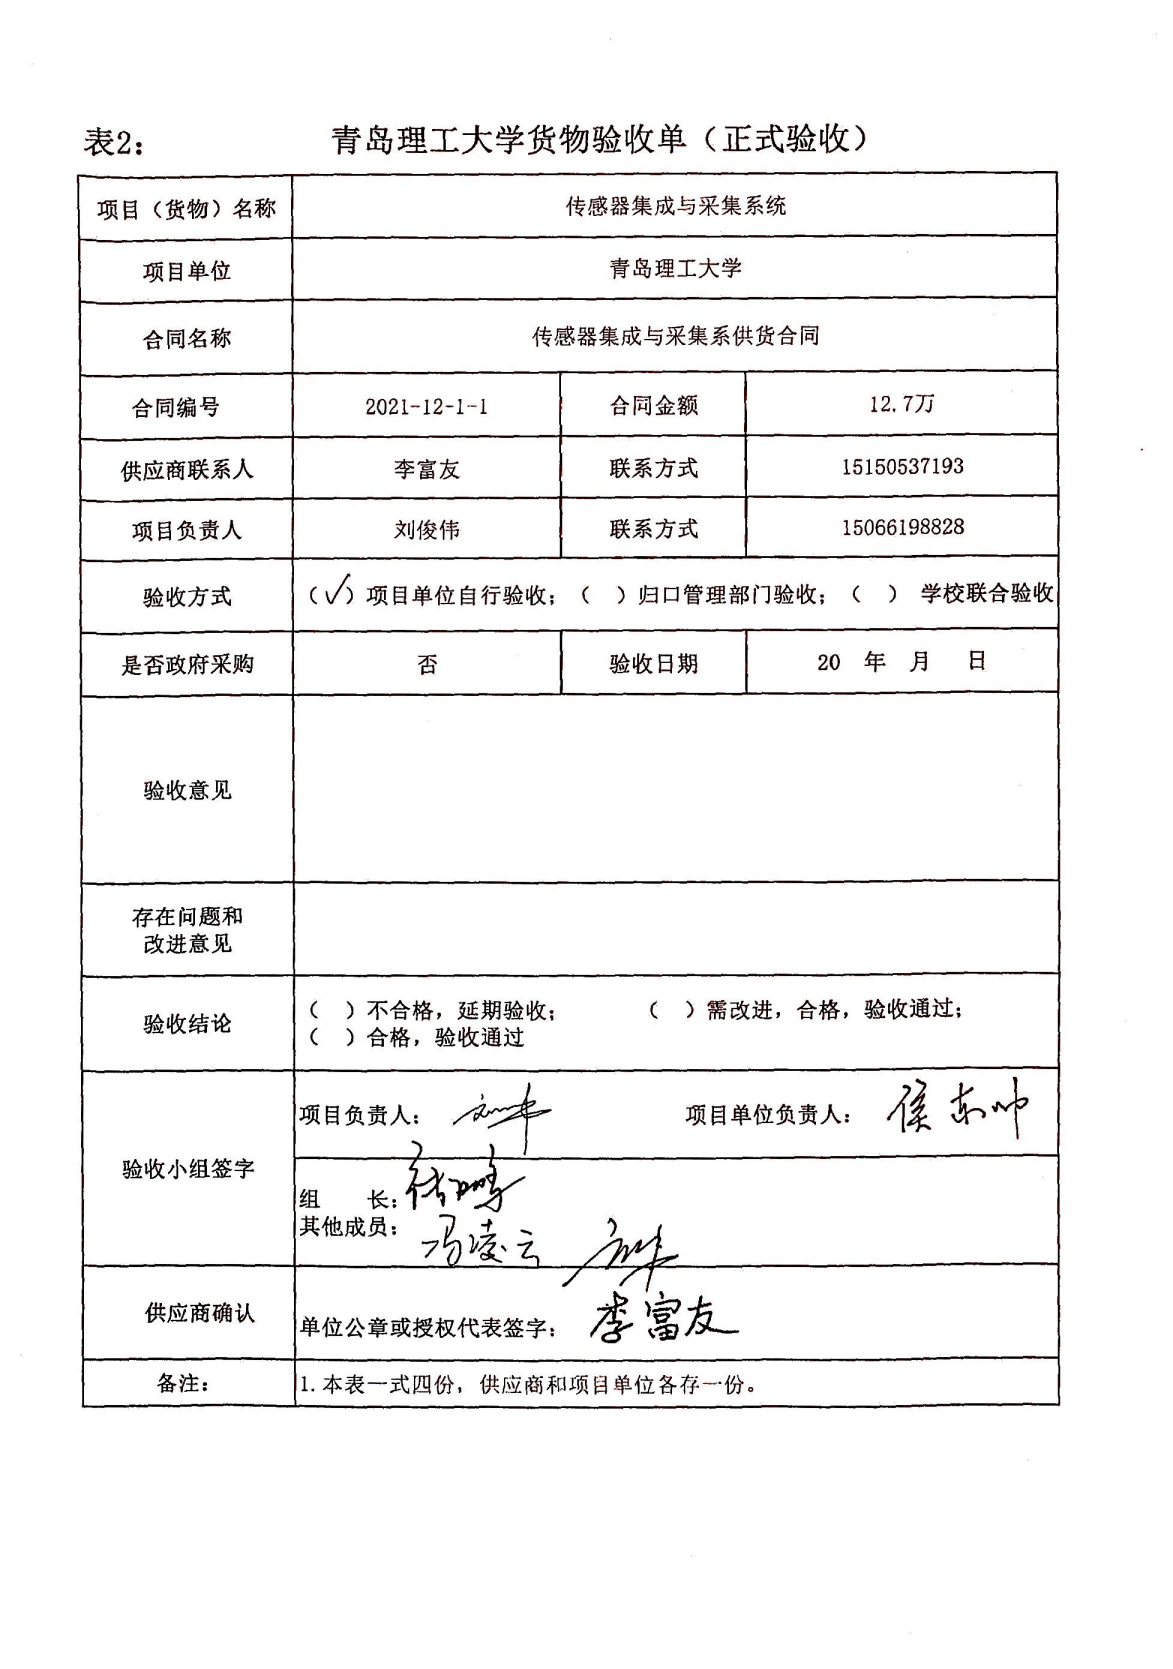 表2：
青岛理工大学货物验收单（正式验收）
项目（货物）名称 传感器集成与采集系统
项目单位 青岛理工大学
合同名称 传感器集成与采集系供货合同
合同编号 2021-12-1-1 合同金额 12.7万
供应商联系人 李富友 联系方式 15150537193
项目负责人 刘俊伟 联系方式 15066198828
验收方式 （✓）项目单位自行验收；（ ）归口管理部门验收；（ ） 学校联合验收
是否政府采购 否 验收日期 20 年 月 日
验收意见
存在问题和
改进意见
验收结论
（ ）不合格，延期验收； （ ）需改进，合格，验收通过；
（ ）合格，验收通过
验收小组签字
项目负责人： 项目单位负责人：侯东帅
组 长：
其他成员：冯凌云
供应商确认 单位公章或授权代表签字：李富友
备注： 1.本表一式四份，供应商和项目单位各存一份。